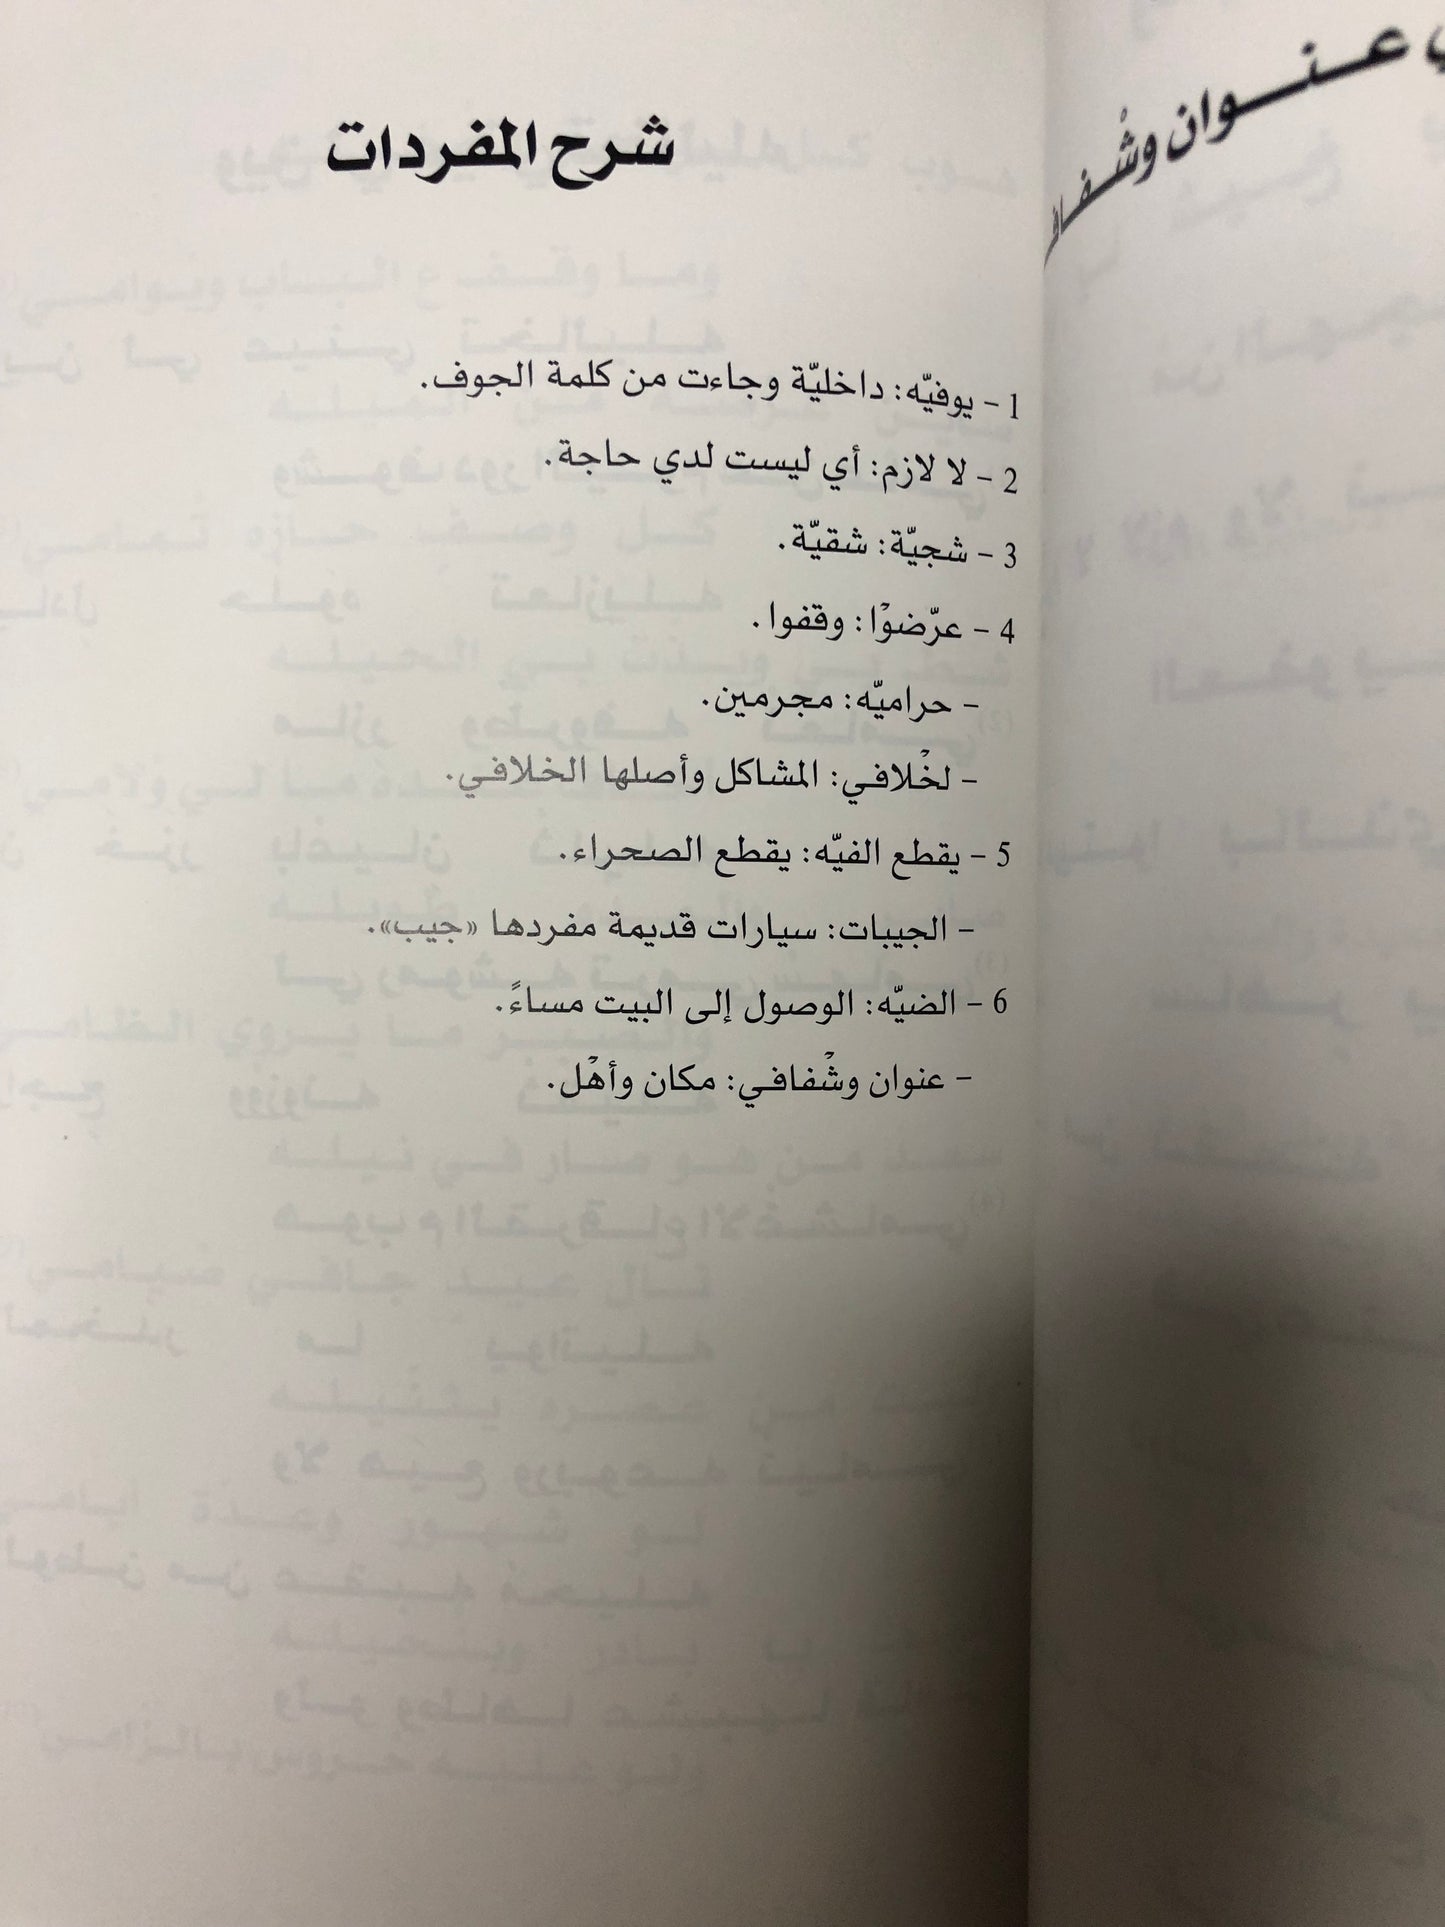 شرح المفردات
1 - يوفيّه: داخليّة وجاءت من كلمة الجوف.
2 - لا لازم: أي ليست لدي حاجة.
3 - شجيّة: شقيّة.
4 - عرّضوْا: وقفوا.
- حراميّه: مجرمين.
- لخْلافي: المشاكل وأصلها الخلافي.
5 - يقطع الفيّه: يقطع الصحراء.
- الجيبات: سيارات قديمة مفردها «جيب».
6 - الضيّه: الوصول إلى البيت مساءً.
- عنوان وشْفافي: مكان وأهْل.
عنوان